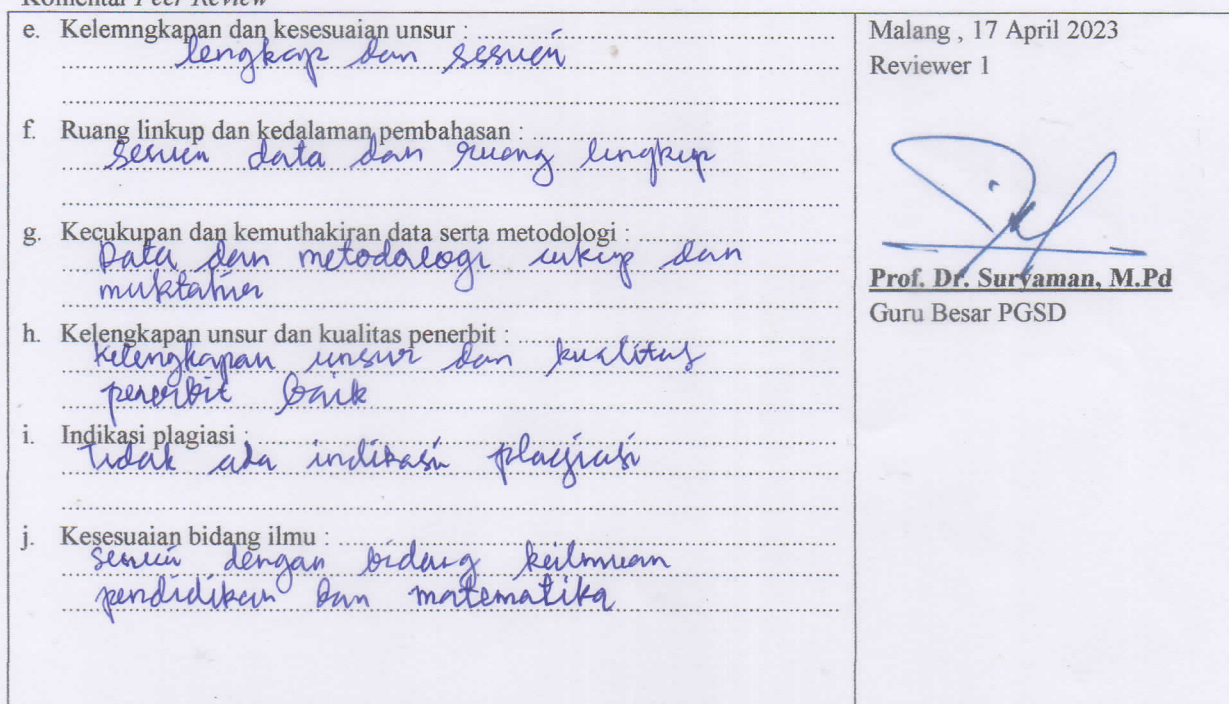 Komentar Peer Review
e. Kelemngkapan dan kesesuaian unsur :
lengkap dan sesuai
f. Ruang linkup dan kedalaman pembahasan :
sesuai data dan ruang lingkup
g. Kecukupan dan kemuthakiran data serta metodologi :
Data dan metodologi cukup dan
muktahir
h. Kelengkapan unsur dan kualitas penerbit :
kelengkapan unsur dan kualitas
penerbit baik
i. Indikasi plagiasi :
Tidak ada indikasi plagiasi
j. Kesesuaian bidang ilmu :
sesuai dengan bidang keilmuan
pendidikan dan matematika
Malang , 17 April 2023
Reviewer 1
Prof. Dr. Suryaman, M.Pd
Guru Besar PGSD